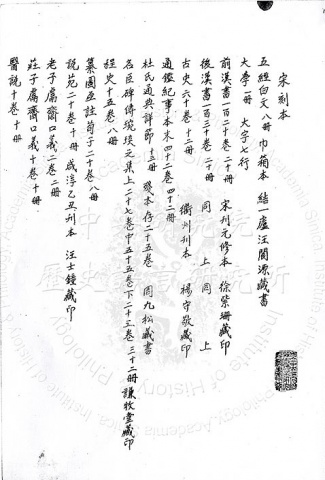 宋刻本
五經白文八冊 巾箱本 結一廬汪閬源藏書
大學一冊 大字七行
前漢書一百二十卷二十冊 宋刊元修本 徐紫珊藏印
後漢書一百三十卷二冊 同上 同上
古史六十卷十二冊 衢州刊本 楊守敬藏印
通鑑紀事本末四十二卷四十二冊
杜氏通典詳節十三冊 殘本存二十五卷 周九松藏書
名臣碑傳琬琰之集上二十七卷中五十五卷下二十五卷三十二冊 謙牧堂藏印
經史十五卷八冊
纂圖互註荀子二十卷八冊
說苑二十卷十冊 咸淳乙丑刊本 汪士鐘藏印
老子鬳齋口義二卷二冊
莊子鬳齋口義十卷十冊
醫說十卷十冊